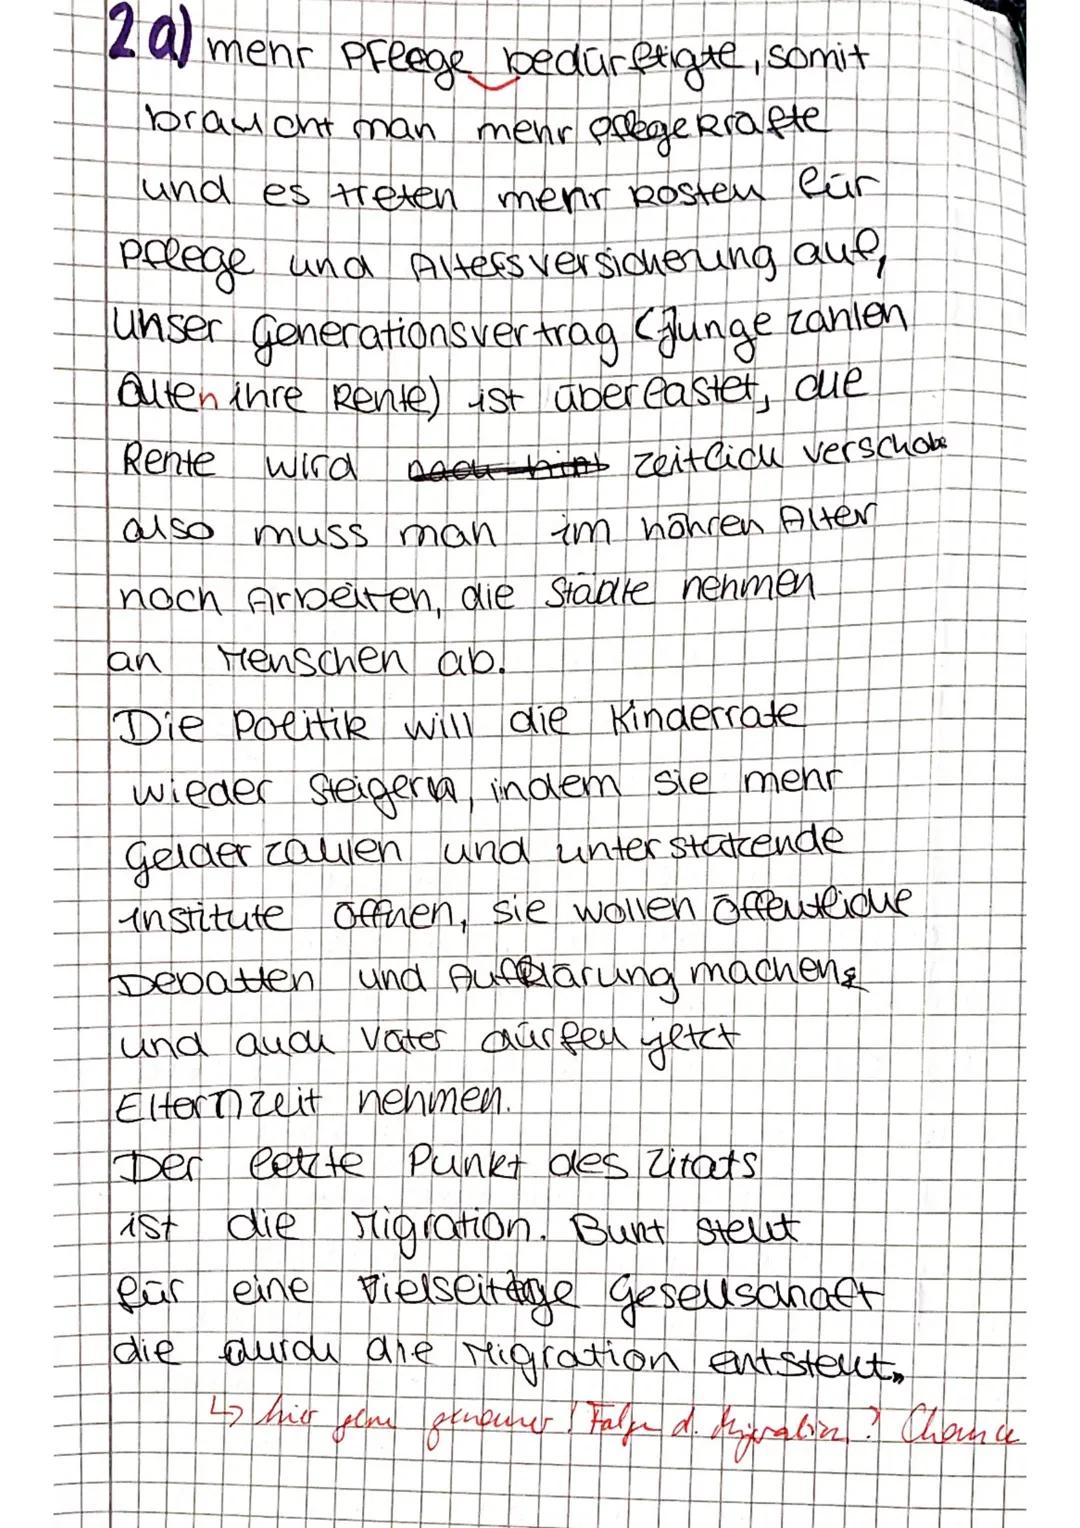 2a) mehr Pflege bedürftigte, somit
braucht man mehr Pflegekräfte
und es treten mehr kosten für
Pflege und Altersversicherung auf,
unser Generationsvertrag (Junge zahlen
Alten ihre Rente) ist überlastet, die
Rente wird zeitlich verschobe
also muss man im höhren Alter
noch Arbeiten, die Städte nehmen
an Menschen ab.
Die Politik will die Kinderrate
wieder steigern, indem sie mehr
Gelder zahlen und unterstützende
institute öffnen, sie wollen öffentliche
Debatten und Aufklärung machen
und auch Väter dürfen jetzt
Elternzeit nehmen.
Der letzte Punkt des Zitats
ist die Migration. Bunt steht
für eine Vielseitige Gesellschaft
die durch die Migration entsteht.
↳ hier gern genauer! Folgen d. Migration? Chance